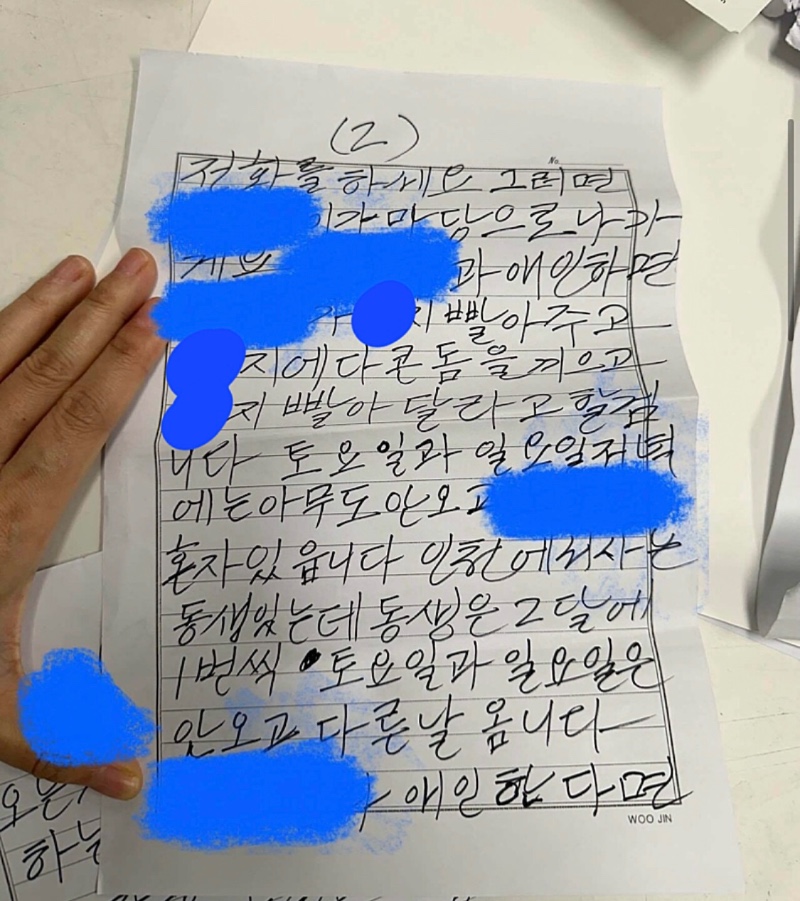 (2)
No.
전화를 하세요 그러면
가 마당으로 나가
게요
과 애인하면
빨아주고
지에다 콘돔을 끼으고
지 빨아 달라고 할겁
니다 토요일과 일요일저녁
에는아무도안오고
혼자있읍니다 인천에서사는
동생있는데 동생은 2달에
1번씩 토요일과 일요일은
안오고 다른날 옵니다
애인한다면
WOO JIN
하는